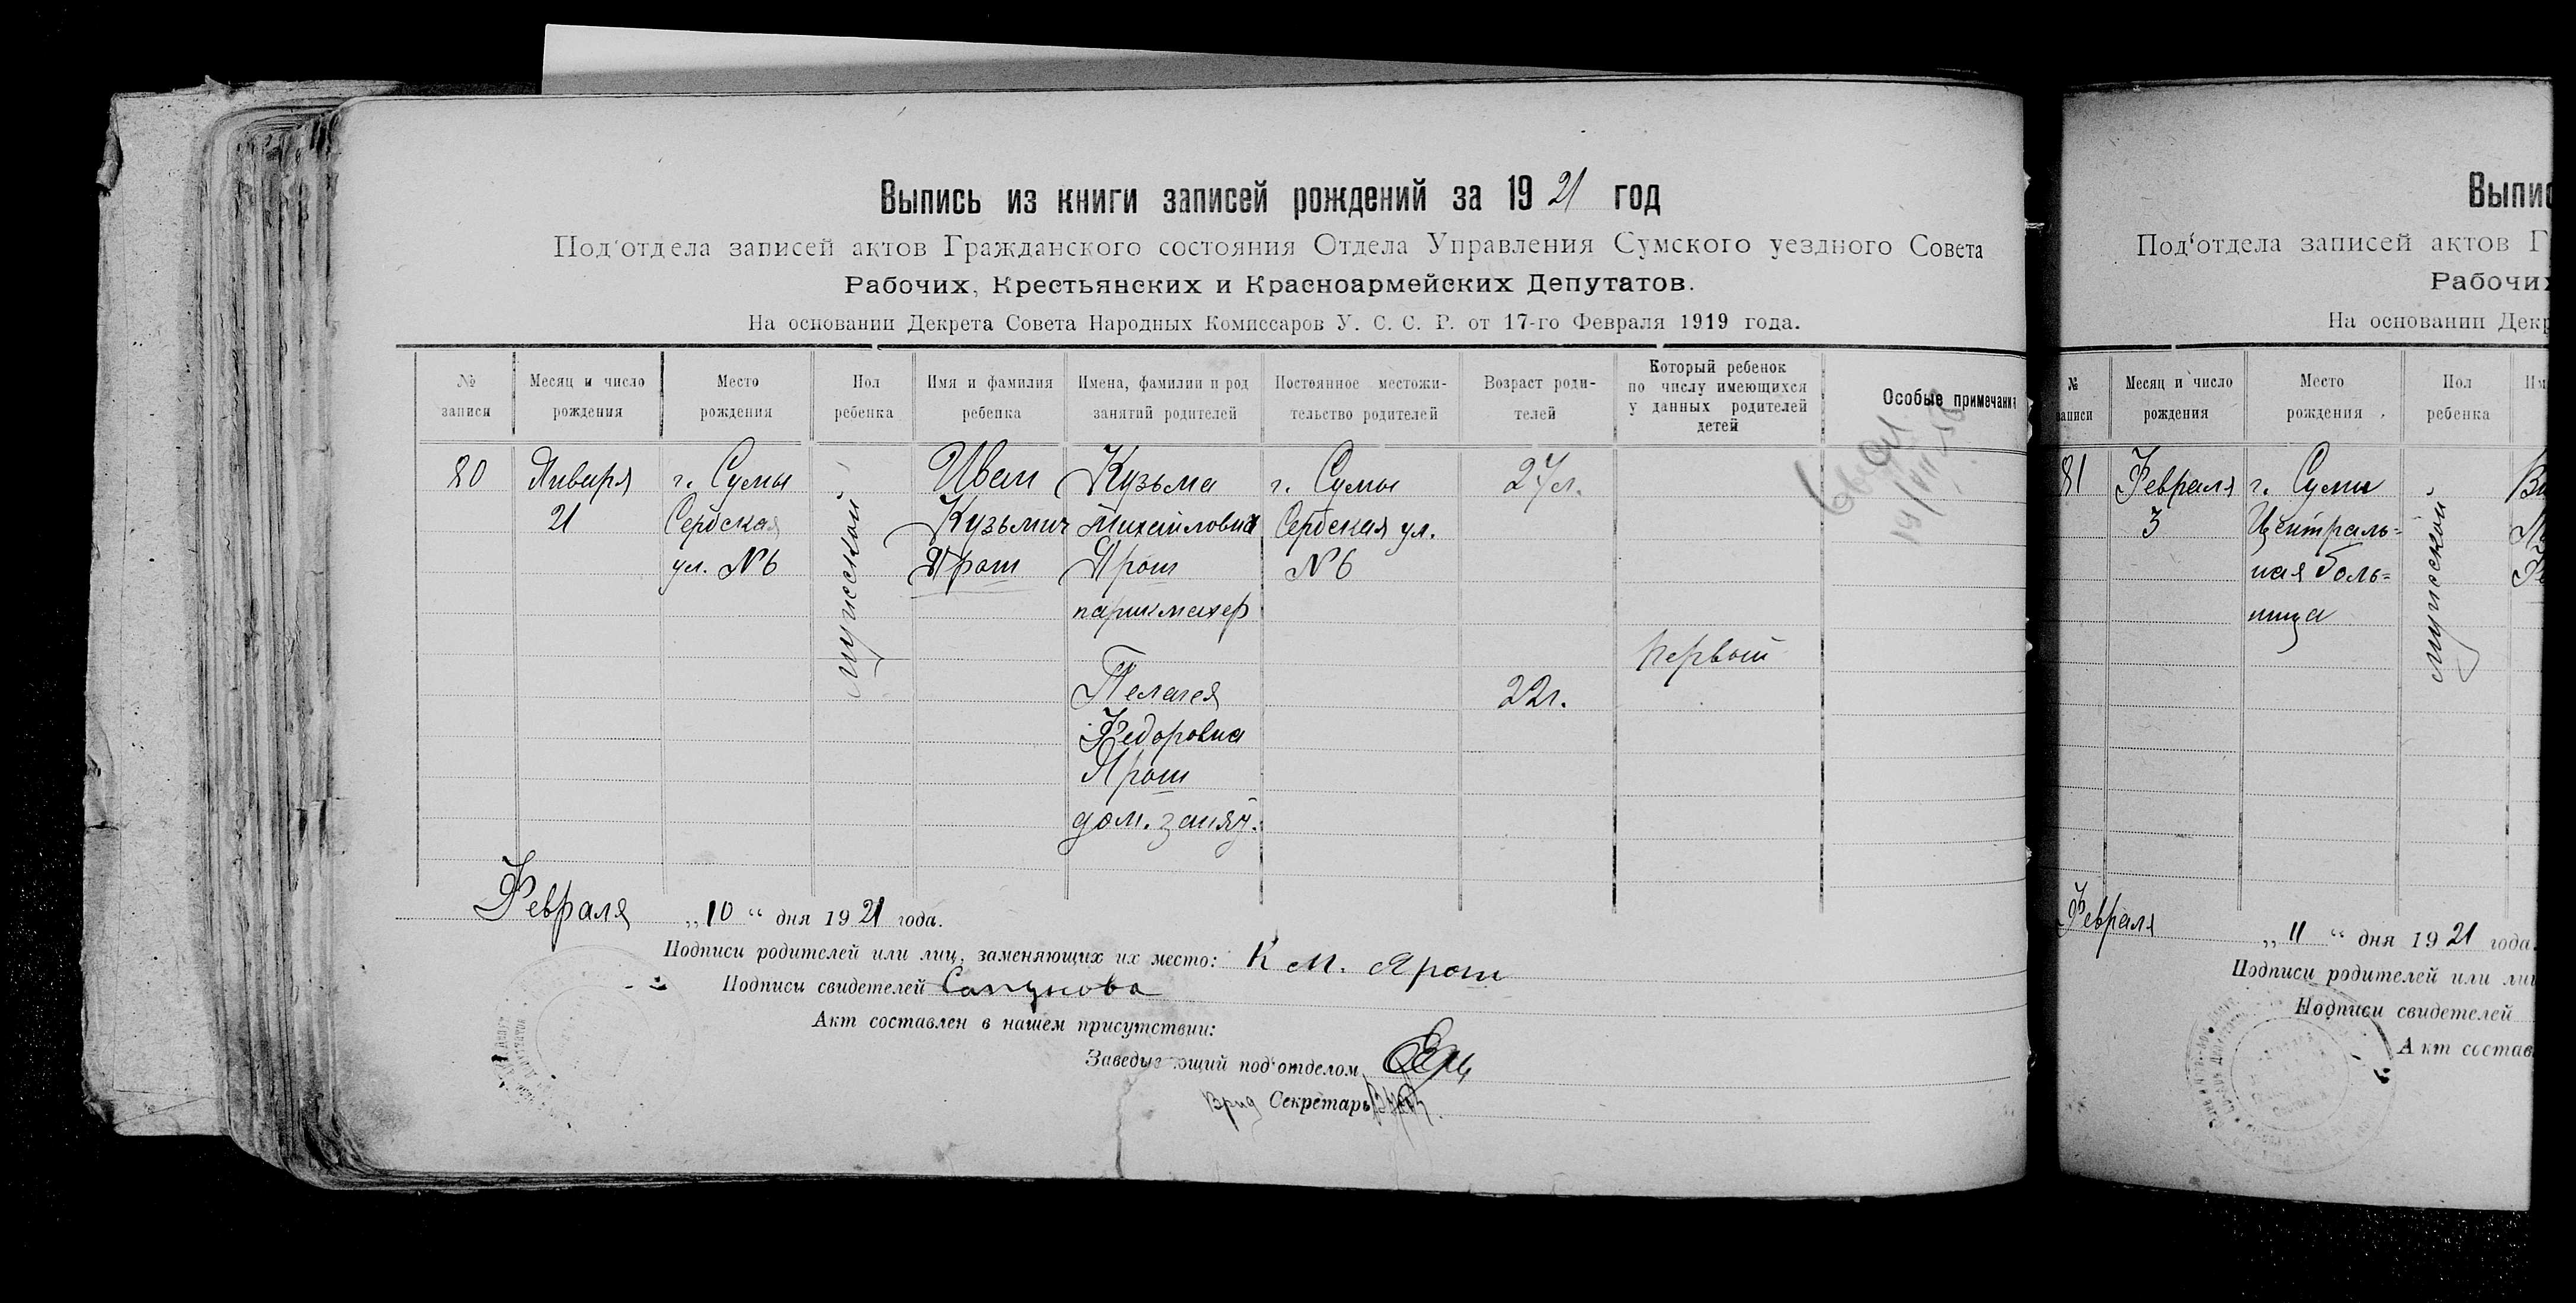 Выпись из книги записей рождений за 1921 год
Под'отдела записей актов Гражданского состояния Отдела Управления Сумского уездного Совета
Рабочих, Крестьянских и Красноармейских Депутатов.
На основании Декрета Совета Народных Комиссаров У. С. С. Р. от 17-го Февраля 1919 года.
№ записи
Месяц и число рождения
Место рождения
Пол ребенка
Имя и фамилия ребенка
Имена, фамилии и род занятий родителей
Постоянное местожительство родителей
Возраст родителей
Который ребенок по числу имеющихся у данных родителей детей
Особые примечания
80
Января
21
г. Сумы
Сербская
ул. №6
мужской
Иван
Кузьмич
Ярош
Кузьма
Михайлович
Ярош
парикмахер
Пелагея
Федоровна
Ярош
дом. занят.
г. Сумы
Сербская ул.
№6
27 л.
22 г.
первый
Февраля „10“ дня 1921 года.
Подписи родителей или лиц, заменяющих их место: К М. Ярош
Подписи свидетелей Сапунова
Акт составлен в нашем присутствии:
Заведывающий под'отделом
Врид Секретарь
Выпис
Под'отдела записей актов Г
Рабочих
На основании Декр
№ записи
Месяц и число рождения
Место рождения
Пол ребенка
81
Февраля
3
г. Сумы
Централь=
ная боль=
ница
мужской
Февраля „11“ дня 1921 года.
Подписи родителей или ли
Подписи свидетелей
Акт состав